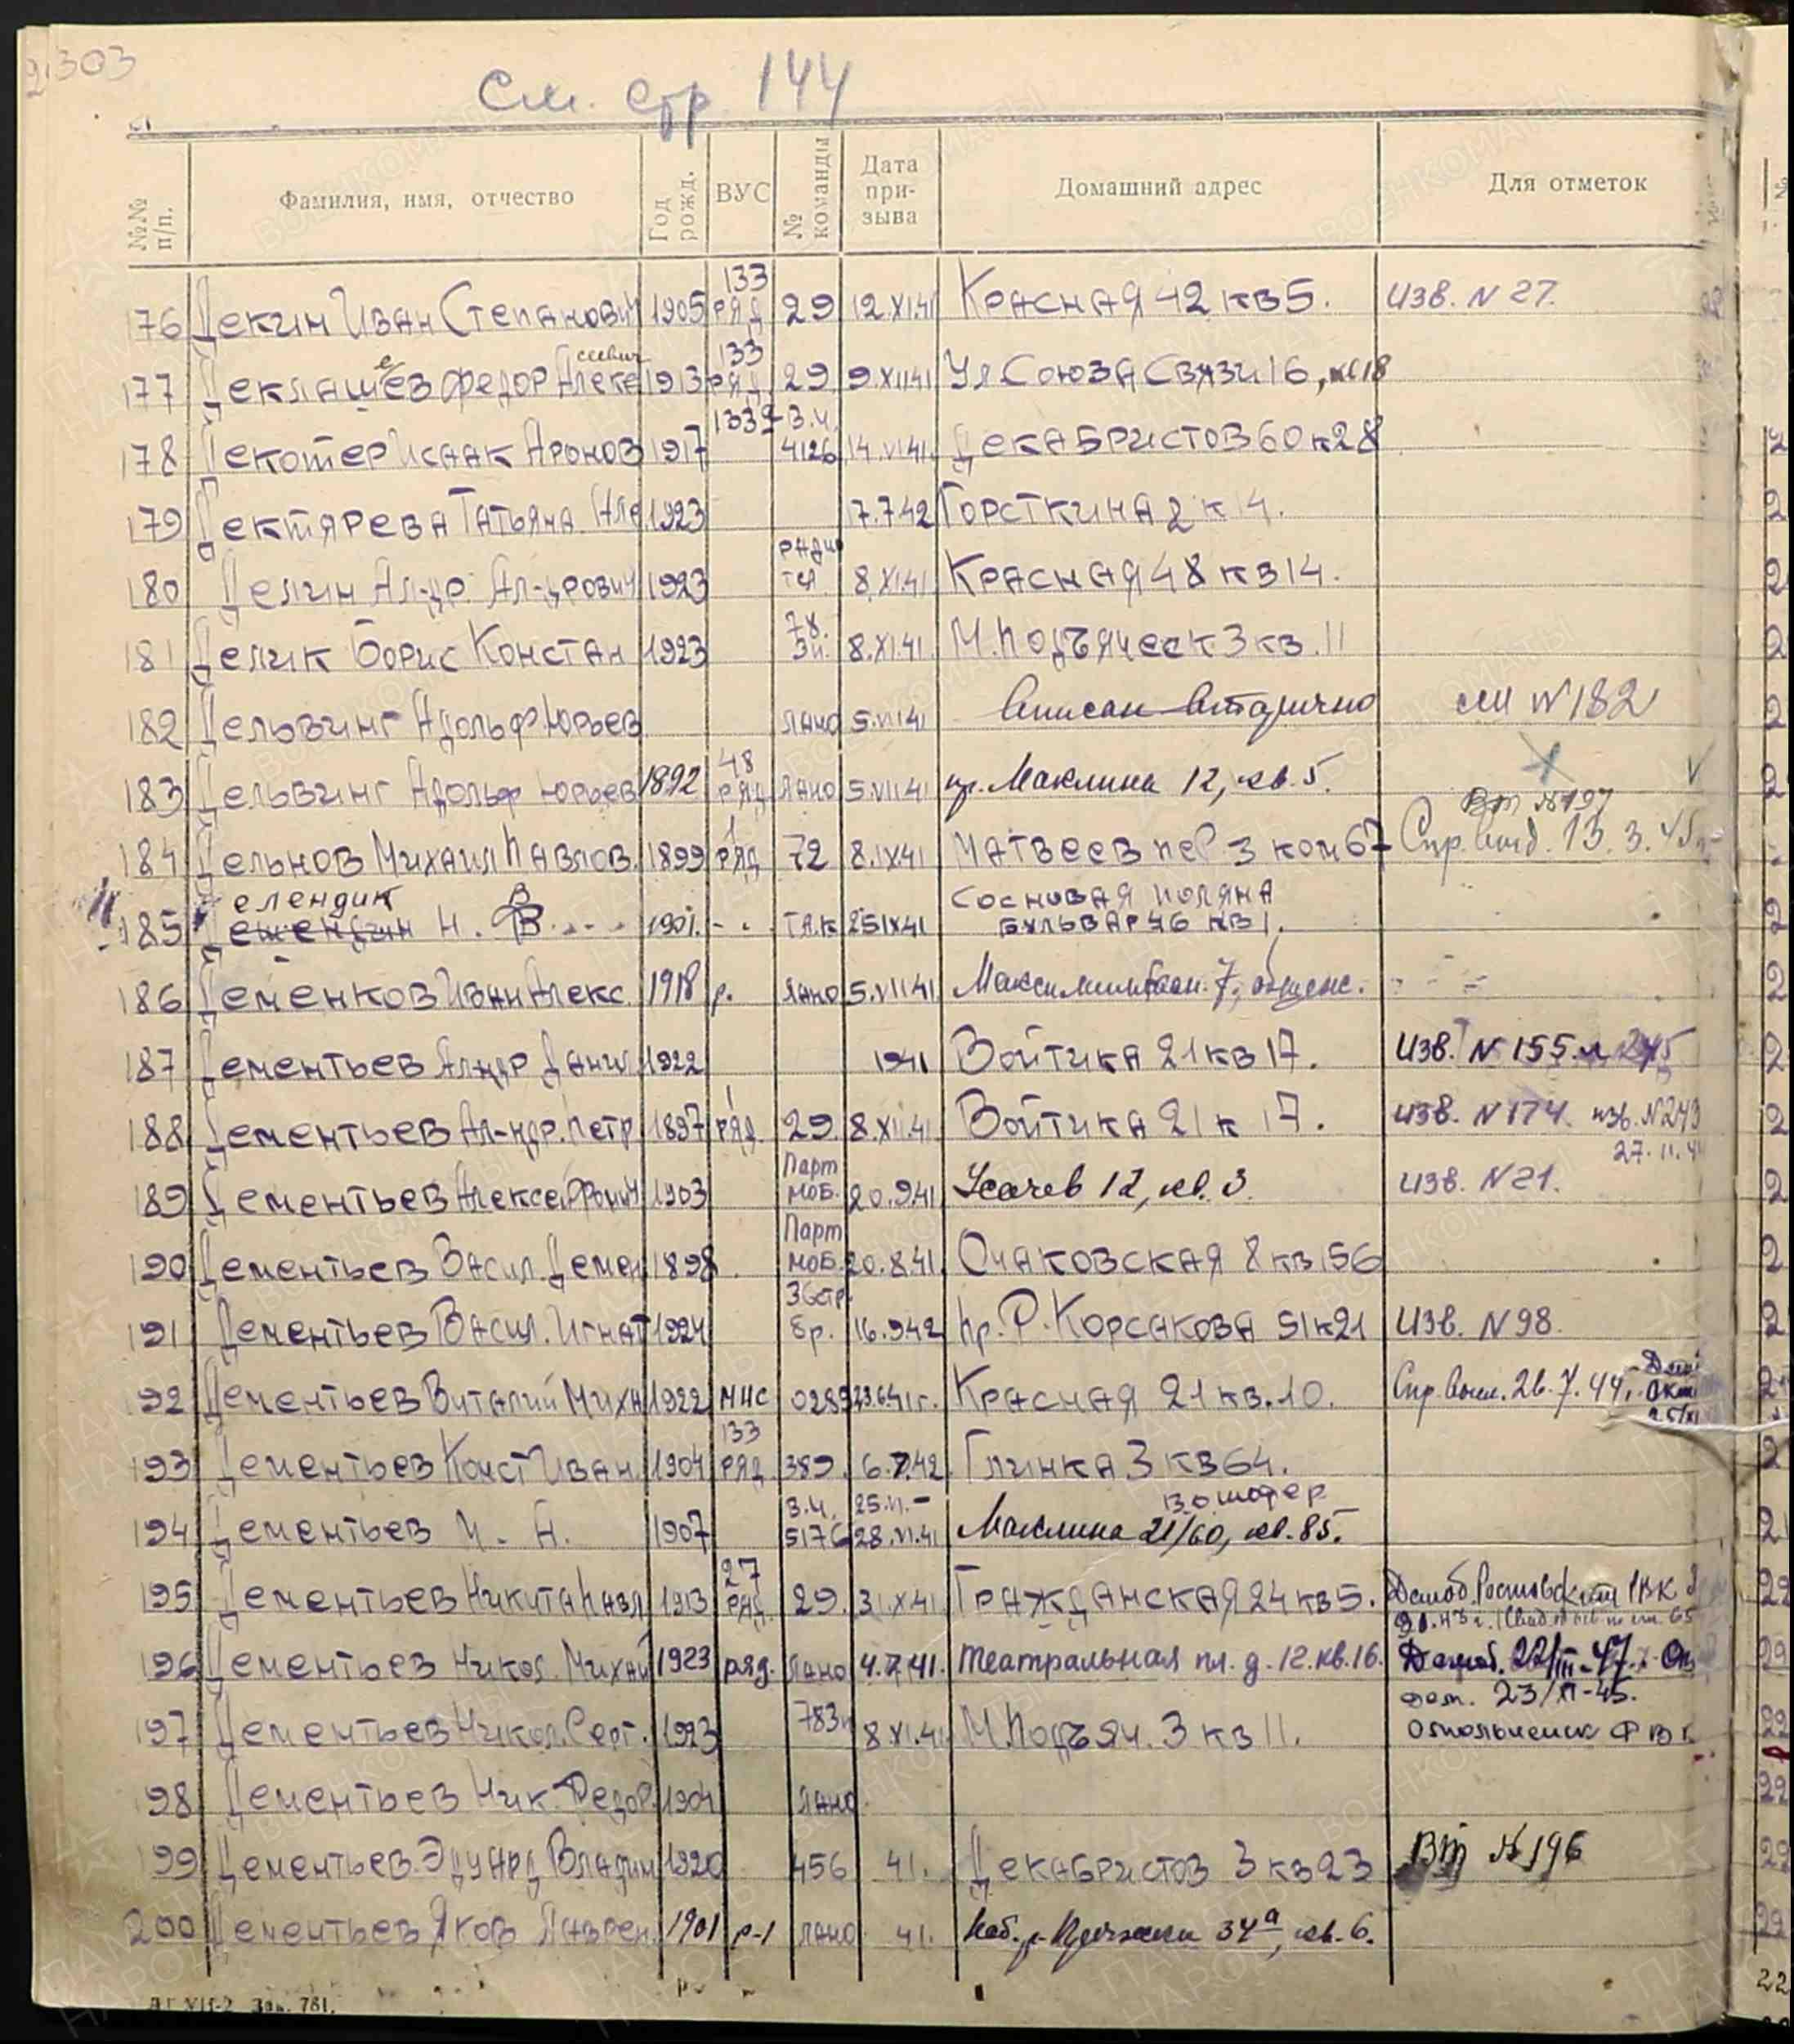 303
См. стр. 144
№№ п/п. Фамилия, имя, отчество Год рожд. ВУС № команды Дата призыва Домашний адрес Для отметок
176 Декин Иван Степанович 1905 133 ряд 29 12.XI.41 Красная 42 кв 5. Изв. N 27.
177 Деклашев Федор Алексеевич 1913 133 ряд 29 9.XII41 Ул. Союза Связи 16, к18
178 Декотер Исаак Аронов 1917 133 В.ч. 4126 14.VI41. Декабристов 60 к 28
179 Дектярева Татьяна 1923 7.7.42 Горсткина 2 к 14.
180 Делин Ал-др. Ал-дрович 1923 8.XI.41 Красная 48 кв 14.
181 Делик Борис Констан 1923 8.XI.41. М. Подъяческ 3 кв. 11
182 Дельвинг Адольф Юрьев ЛАНО 5.VII41 Вписан вторично см N 182
183 Дельвинг Адольф Юрьев 1892 48 ряд ЛАНО 5.VII.41 пр. Маклина 12, кв. 5.
184 Дельнов Михаил Павлов. 1899 1 ряд 72 8.IX41 Матвеев пер 3 ком 67 Спр. выд. 13.3.45
185 елендик Н. В. 1901. - тяк 25IX41 Сосновая поляна бульвар 46 кв 1.
186 Деменков Иван Алекс. 1918 р. ЛАНО 5.VII41 7, общеж.
187 Дементьев Ал-др Данил 1922 1941 Войтика 21 кв 17. Изв. N 155.
188 Дементьев Ал-ндр. Петр. 1897 1 ряд. 29. 8.XII.41 Войтика 21 к 17. изв. N 174. изв. N 243
27.11.4
189 Дементьев Алексей 1903 Парт моб. 20.9.41 Усачев 12, кв. 3. изв. N 21.
190 Дементьев Васил. Демен 1898 Парт моб. 20.8.41. Очаковская 8 кв 56
191 Дементьев Васил. Игнат 1924 36 стр. бр. 16.9.42 пр. Р. Корсакова 51 к 21 Изв. N 98.
192 Дементьев Виталий Миха 1922 МПС 0289 23.6.41г. Красная 21 кв. 10. Спр. выд. 26.7.44г.
193 Дементьев Конст Иван. 1904 133 ряд 389. 6.7.42 Глинка 3 кв 64.
194 Дементьев И. А. 1907 В.ч. 5176 25.VI.- 28.VI.41 Маклина 21/60, кв. 85. шофер
195 Дементьев Никита Павл 1913 27 ряд. 29. 31.X.41 Гражданская 24 кв 5. Демоб. Ростовским РВК
196 Дементьев Никол. Михай 1923 ряд. ЛАНО 4.7.41. Театральная пл. д. 12. кв. 16. Демоб. 22/III-47
дем. 23/XI-45.
197 Дементьев Никол. Серг. 1923 783 8 XI.41 М. Подъяч. 3 кв 11.
198 Дементьев Ник. Федор. 1904 ЛАНО.
199 Дементьев Эдуард Владим 1920 456 41. Декабристов 3 кв 23 Вт N 196
200 Дементьев Яков Лаврен. 1901 р-1 ЛАНО 41. Наб. р. Пряжки 34а, кв. 6.
Зак. 781.